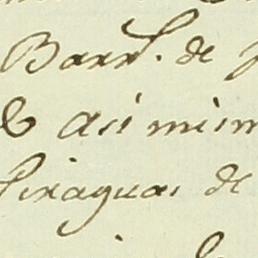 Barr.^l de
asi mism
Piraguas de